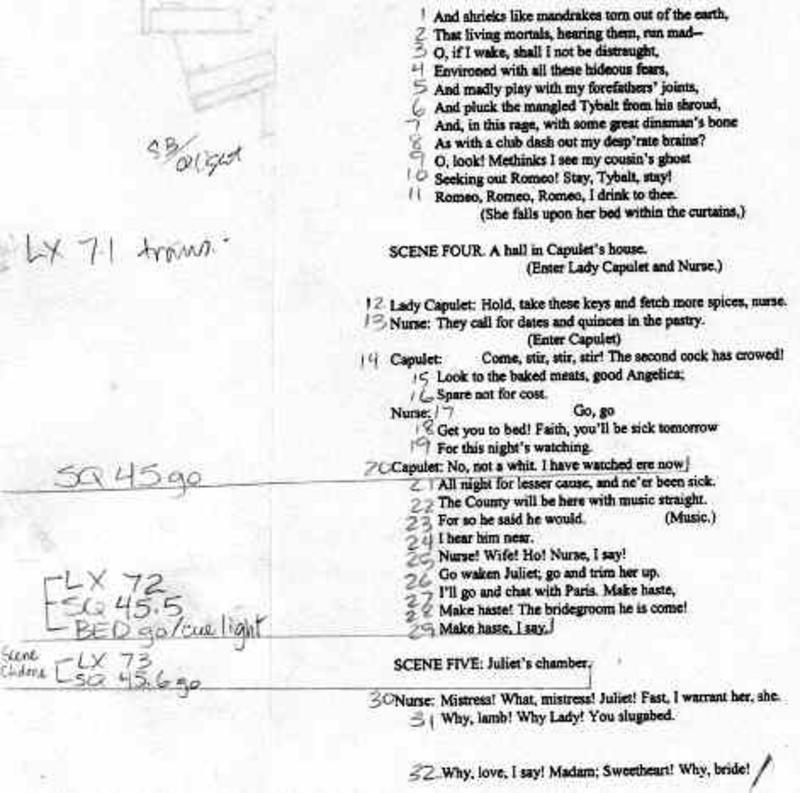 1 And shrieks like mandrakes torn out of the earth,
2 That living mortals, hearing them, run mad--
3 O, if I wake, shall I not be distraught,
4 Environed with all these hideous fears,
5 And madly play with my forefathers' joints,
6 And pluck the mangled Tybalt from his shroud,
7 And, in this rage, with some great dinsman's bone
8 As with a club dash out my desp'rate brains?
9 O, look! Methinks I see my cousin's ghost
10 Seeking out Romeo! Stay, Tybalt, stay!
11 Romeo, Romeo, Romeo, I drink to thee.
(She falls upon her bed within the curtains,)
SB/
LX 71 trans.
SCENE FOUR. A hall in Capulet's house.
(Enter Lady Capulet and Nurse.)
12 Lady Capulet: Hold, take these keys and fetch more spices, nurse.
13 Nurse: They call for dates and quinces in the pastry.
(Enter Capulet)
14 Capulet: Come, stir, stir, stir! The second cock has crowed!
15 Look to the baked meats, good Angelica;
16 Spare not for cost.
Nurse: 17 Go, go
18 Get you to bed! Faith, you'll be sick tomorrow
19 For this night's watching.
SQ 45 go
20 Capulet: No, not a whit. I have watched ere now
21 All night for lesser cause, and ne'er been sick.
22 The County will be here with music straight.
23 For so he said he would. (Music.)
24 I hear him near.
25 Nurse! Wife! Ho! Nurse, I say!
26 Go waken Juliet; go and trim her up.
27 I'll go and chat with Paris. Make haste,
28 Make haste! The bridegroom he is come!
29 Make haste, I say.
LX 72
SQ 45.5
BED go/cue light
Scene
LX 73
SQ 45.6 go
SCENE FIVE: Juliet's chamber.
30 Nurse: Mistress! What, mistress! Juliet! Fast, I warrant her, she.
31 Why, lamb! Why Lady! You slugabed.
32 Why, love, I say! Madam; Sweetheart! Why, bride!